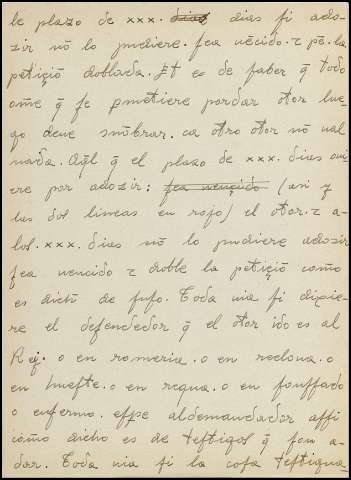 le plazo de xxx. dias dias ſi ado-
zir nõ lo pudiere. ſea uẽcido. z pẽ. la
petiçiõ doblada. Et es de ſaber q̃ todo
ome q̃ ſe pmetiere por dar otor lue-
go deue nõbrar. ca otro otor nõ ual
nada. Aql̃ q̃ el plazo de xxx. dias oui-
ere por adozir: ſea uençido (asi y
las dos lineas en rojo) el otor. z a-
los. xxx. dias nõ lo pudiere adozir
ſea uencido z doble la petiçiõ como
es dictõ de ſuſo. Toda uia ſi dixie-
re el defendedor q̃ el otor ido es al
Rey. o en romeria. o en recloua. o
en hueſte. o en requa. o en ſonſſado
o enfermo. eſſpe al demandador aſſi
como dicho es de teſtigos q̃ ſon a-
dar. Toda uia ſi la coſa teſtigua-